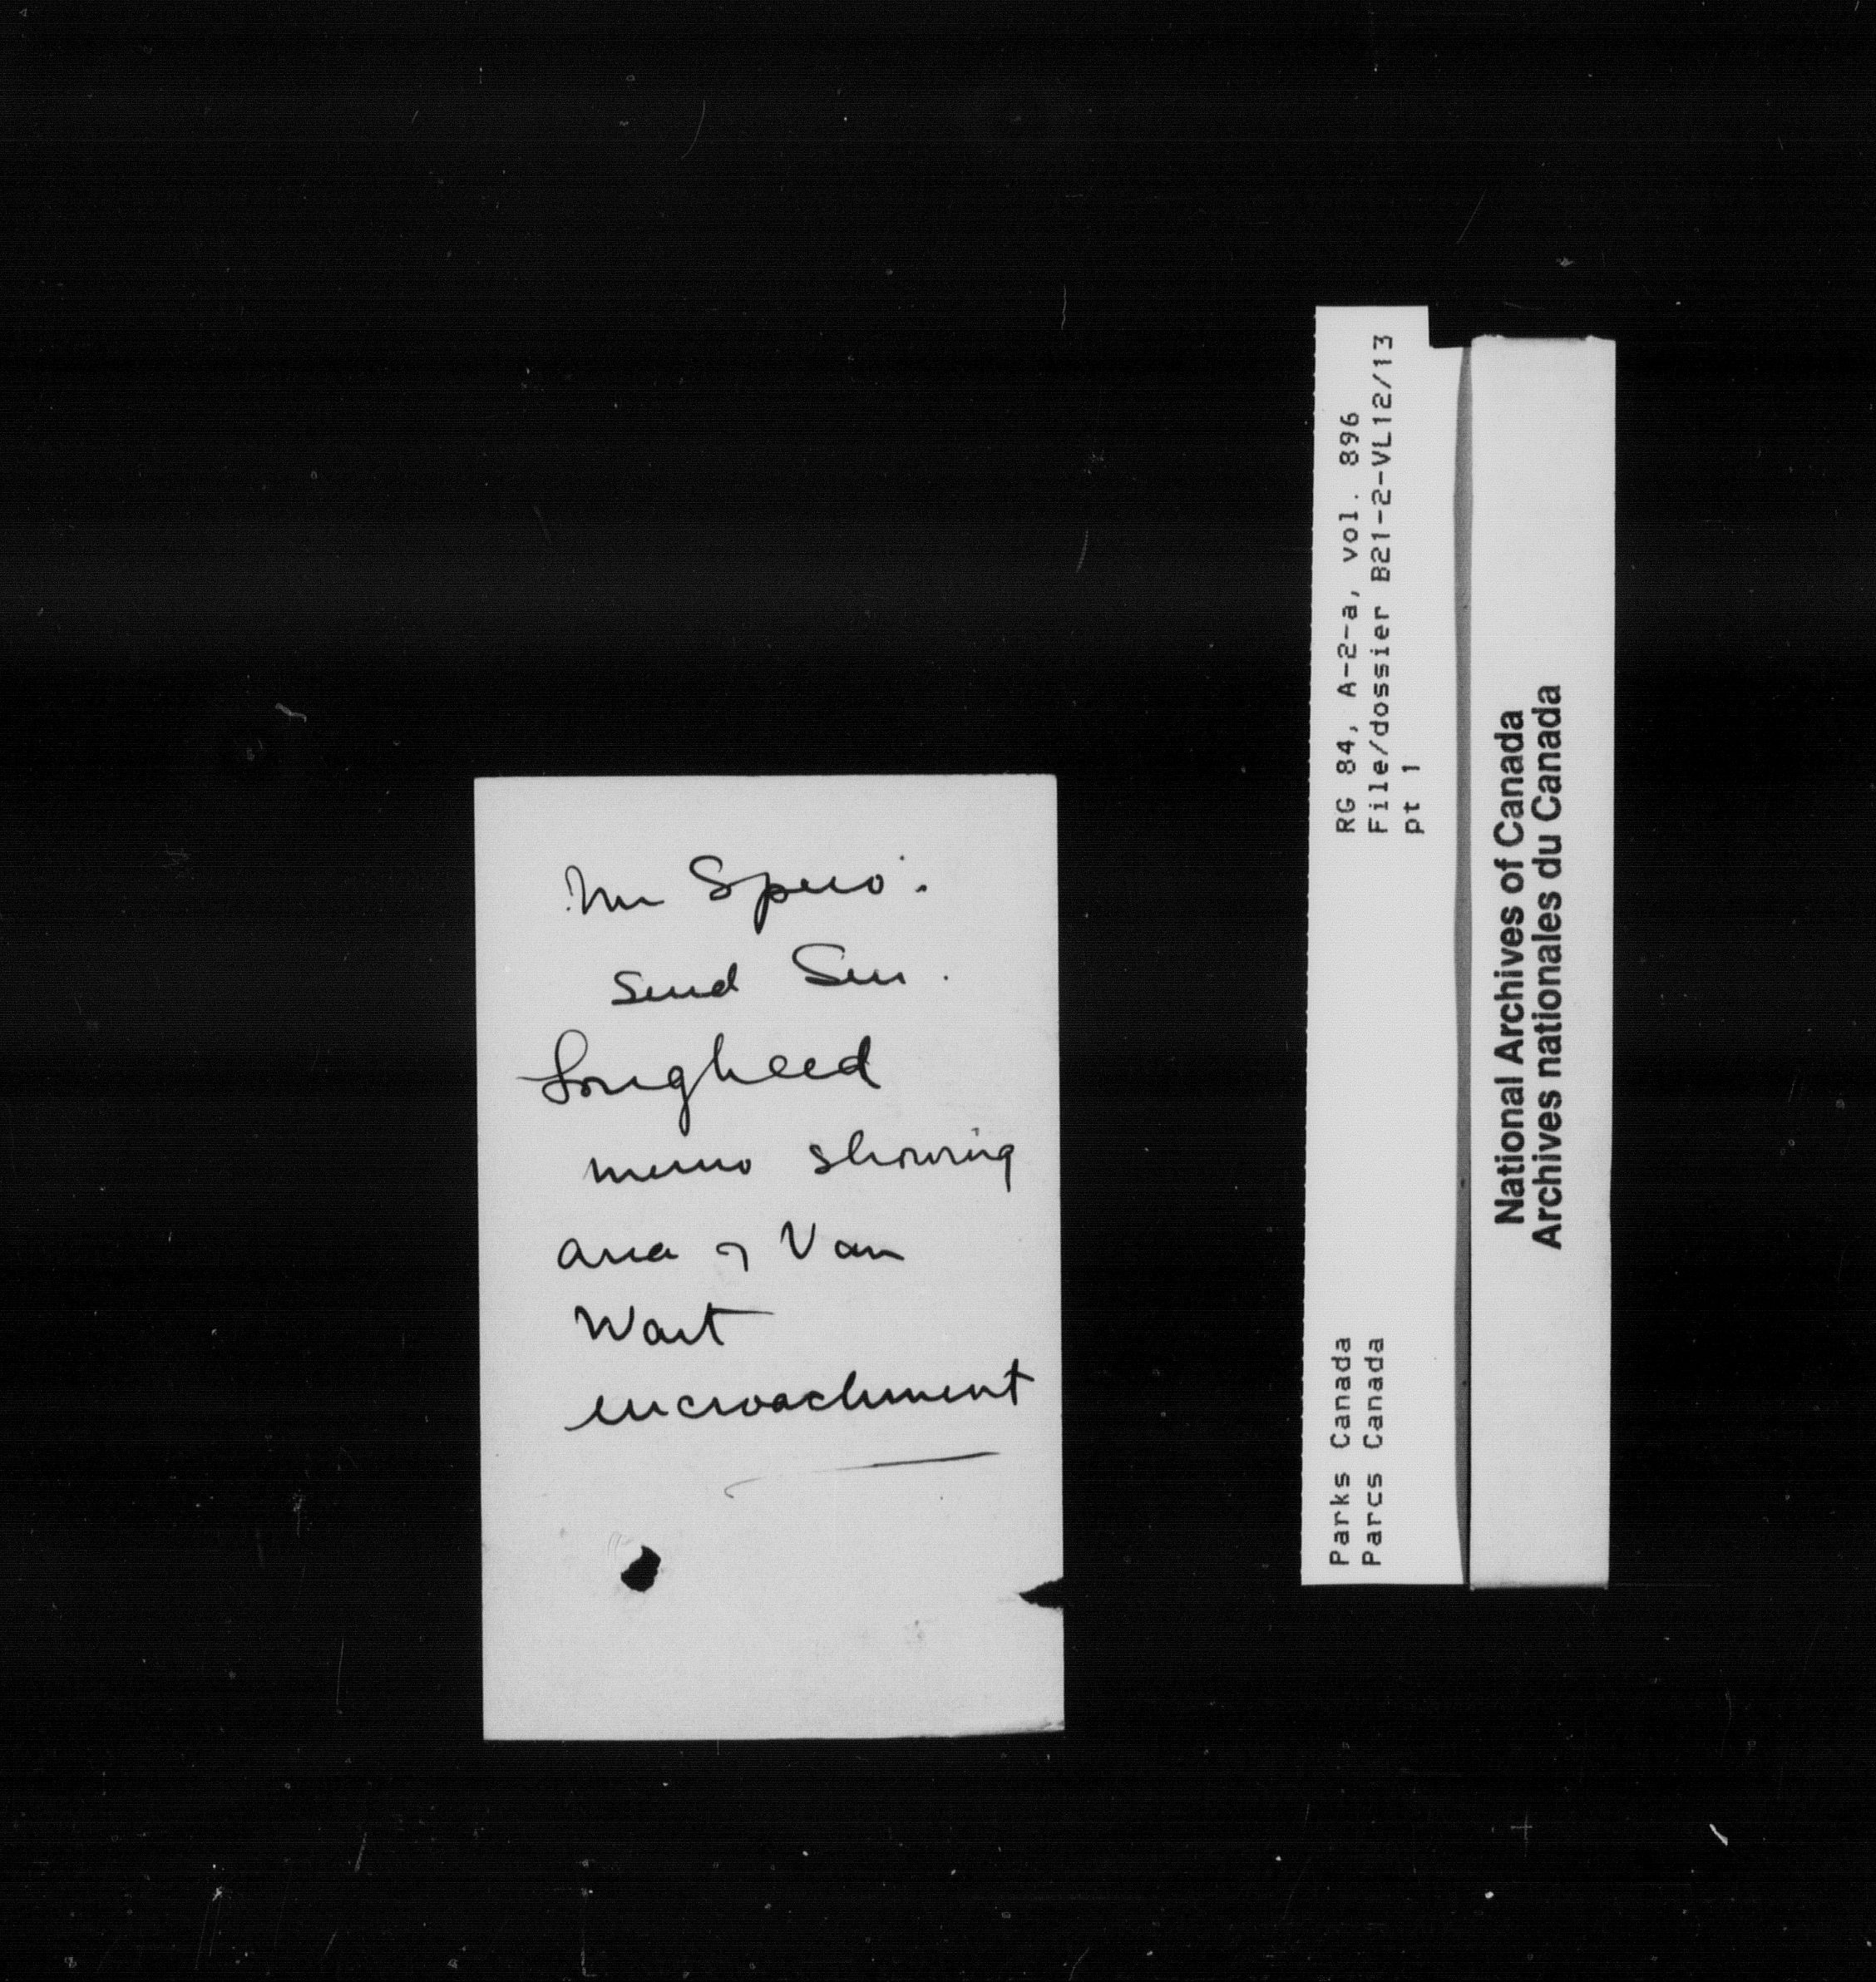 Mr Spero.
Send Sen.
Lougheed
memo showing
area of Van
Wart
encroachment
RG 84, A-2-a, vol. 896
File/dossier B21-2-VL12/13
pt 1
Parks Canada
Parcs Canada
National Archives of Canada
Archives nationales du Canada